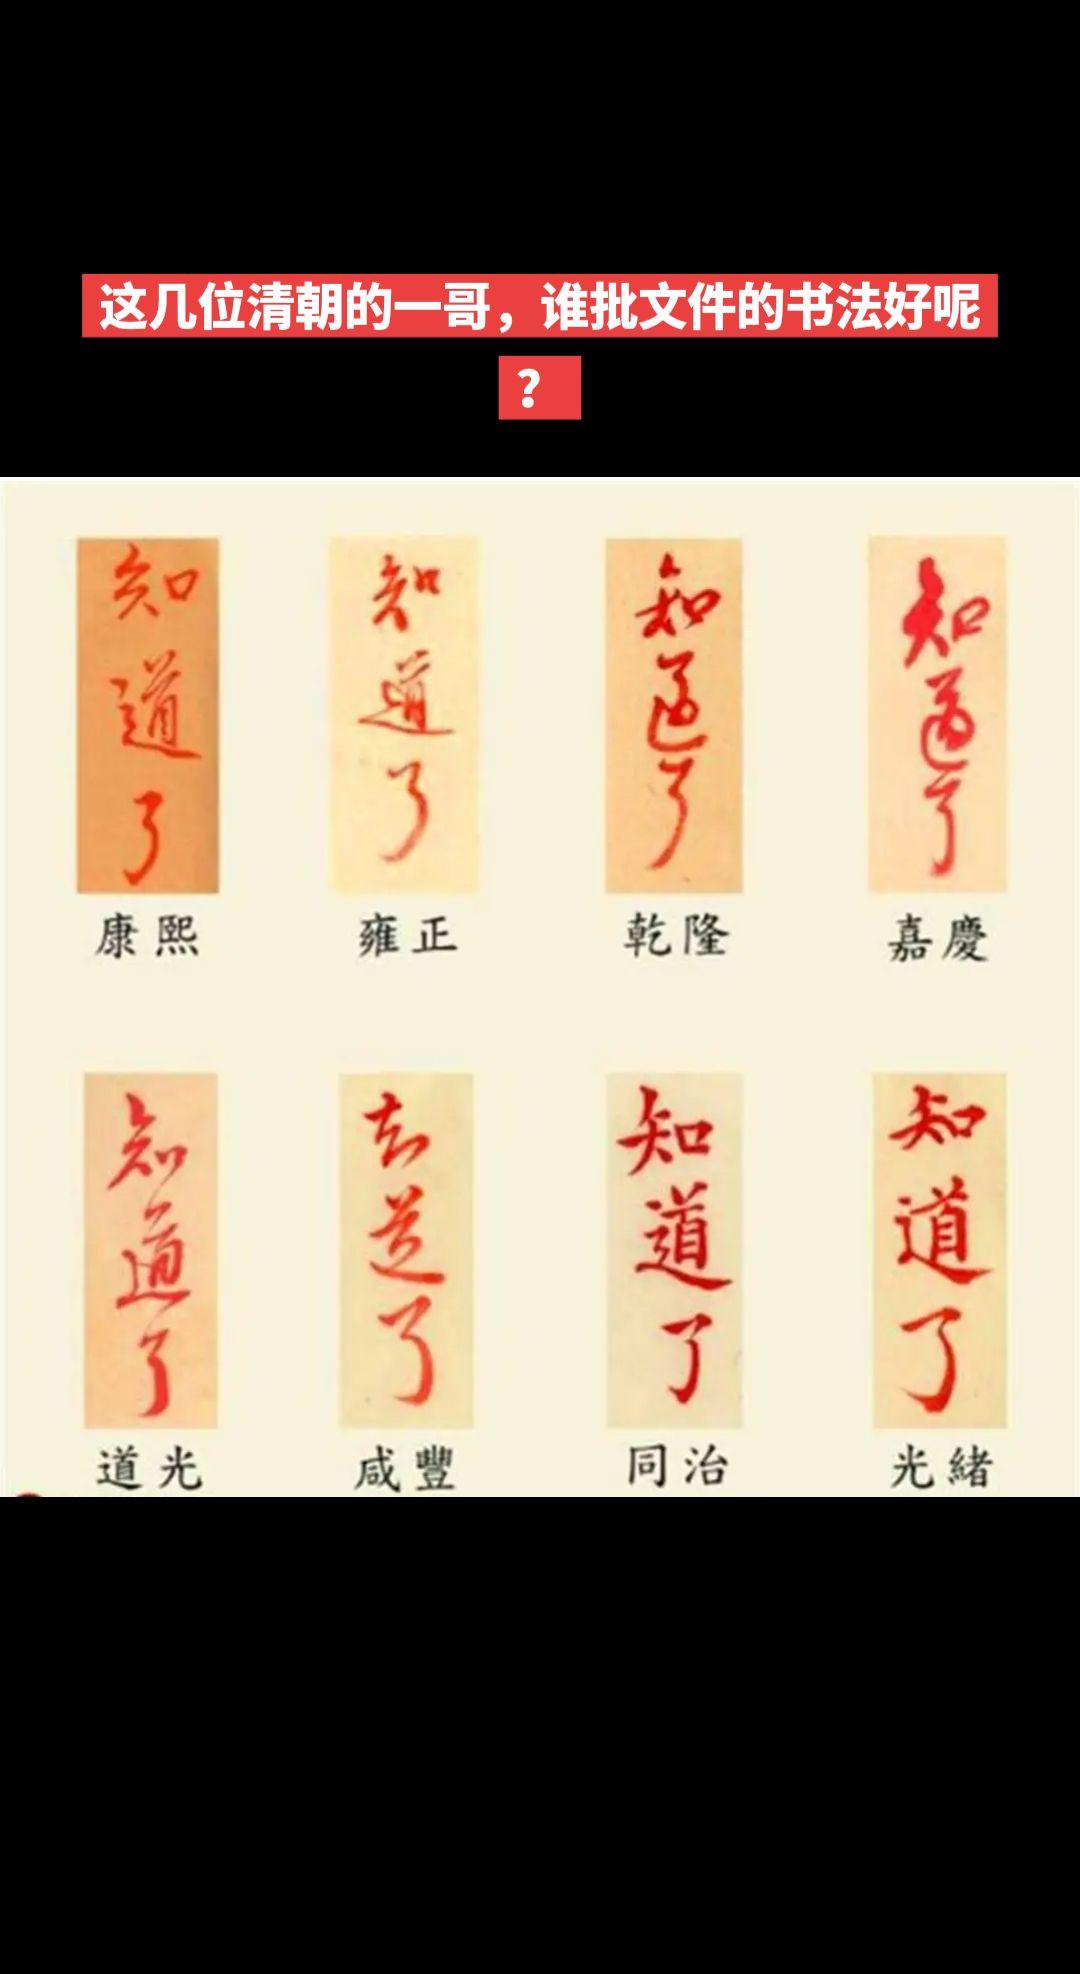 这几位清朝的一哥，谁批文件的书法好呢
？
知道了
知道了
知道了
知道了
康熙
雍正
乾隆
嘉慶
知道了
知道了
知道了
知道了
道光
咸豐
同治
光緒